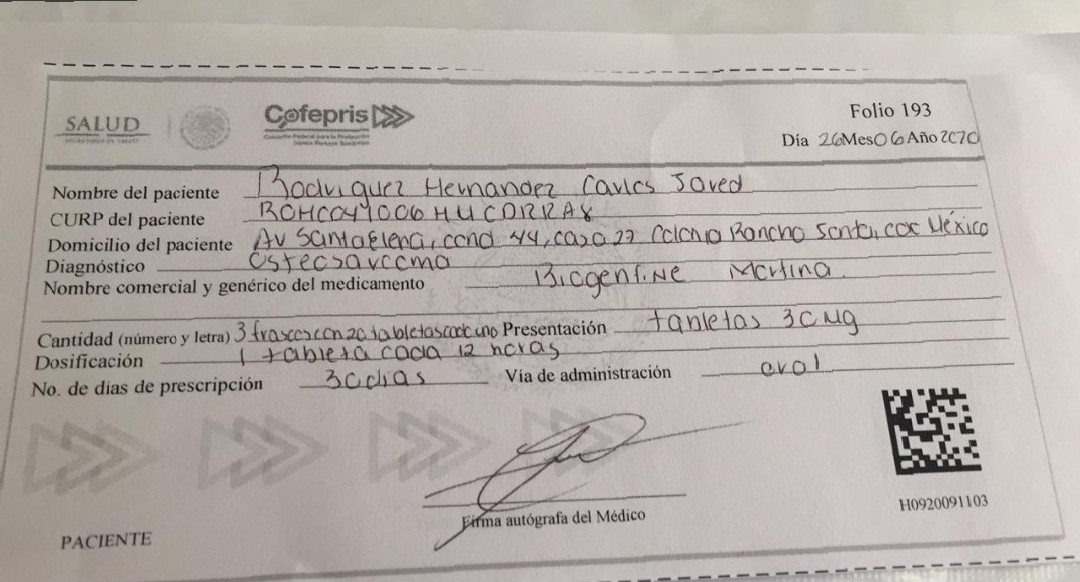 SALUD
SECRETARÍA DE SALUD
Cofepris
Comisión Federal para la Protección
contra Riesgos Sanitarios
Folio 193
Día 26 Mes 06 Año 2020
Nombre del paciente Rodriguez Hernandez Carlos Jared
CURP del paciente
Domicilio del paciente Av Santa Elena, cond 44, casa 27 Colonia Rancho Santa, México
Diagnóstico Osteosarcoma
Nombre comercial y genérico del medicamento Morfina
Cantidad (número y letra) 3 frascos con 20 tabletas cada uno Presentación tabletas 30 Mg
Dosificación 1 tableta cada 12 horas
No. de dias de prescripción 30 dias Vía de administración oral
Firma autógrafa del Médico
H0920091103
PACIENTE